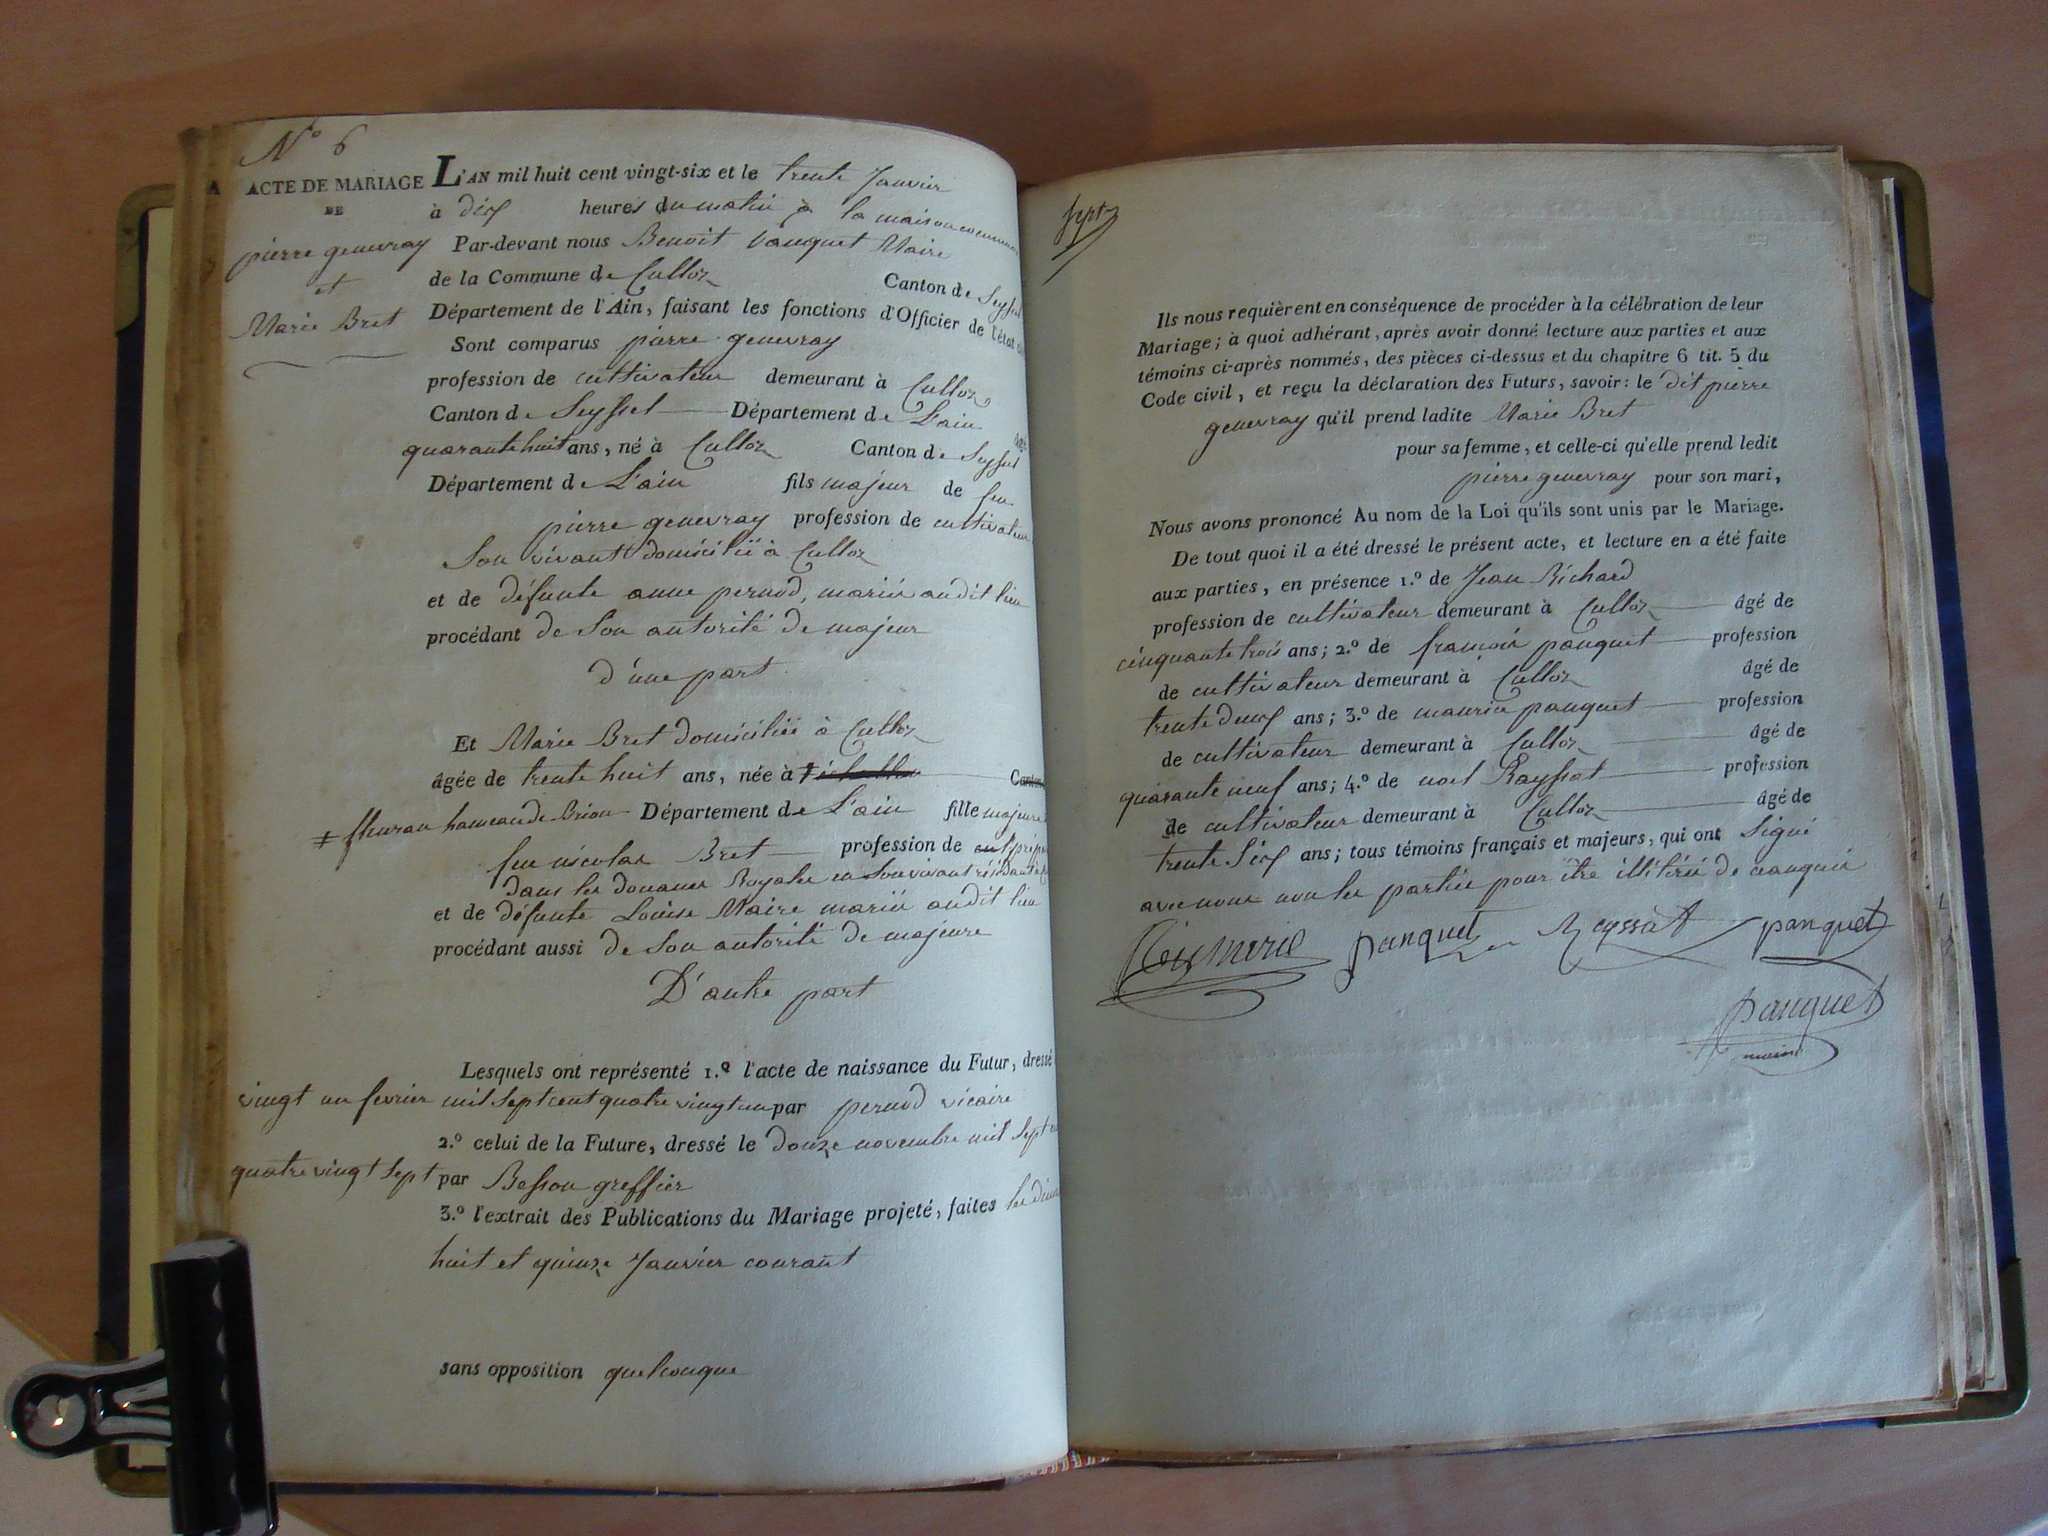 N° 6
ACTE DE MARIAGE
DE
pierre genevray
et
Marie Bret
L'AN mil huit cent vingt-six et le trente Janvier
à dix heures du matin à la maison commune
Par-devant nous Benoit pauquet Maire
de la Commune de Culloz Canton de Seyssel
Département de l'Ain, faisant les fonctions d'Officier de l'état
Sont comparus pierre genevray
profession de cultivateur demeurant à Culloz
Canton de Seyssel Département de L'ain
quarante huit ans, né à Culloz Canton de Seyssel
Département de L'ain fils majeur de feu
pierre genevray profession de cultivateur
Son vivant domicilié à Culloz
et de défunte anne pernod, mariés audit lieu
procédant de Son autorité de majeur
d'une part
Et Marie Bret domiciliée à Culloz
âgée de trente huit ans, née à Canton
hameau de Brion Département de L'ain fille majeure
feu nicolas Bret profession de
dans les douanes Royales en Son vivant
et de défunte Louise Maire mariés audit lieu
procédant aussi de Son autorité de majeure
D'autre part
Lesquels ont représenté 1.° l'acte de naissance du Futur, dressé
vingt un fevrier mil Sept cent quatre vingt un par pernod vicaire
2.° celui de la Future, dressé le douze novembre mil Sept
quatre vingt Sept par Besson greffier
3.° l'extrait des Publications du Mariage projeté, faites les
huit et quinze Janvier courant
sans opposition quelconque
Sept
Ils nous requièrent en conséquence de procéder à la célébration de leur
Mariage; à quoi adhérant, après avoir donné lecture aux parties et aux
témoins ci-après nommés, des pièces ci-dessus et du chapitre 6 tit. 5 du
Code civil, et reçu la déclaration des Futurs, savoir: le dit pierre
genevray qu'il prend ladite Marie Bret
pour sa femme, et celle-ci qu'elle prend ledit
pierre genevray pour son mari,
Nous avons prononcé Au nom de la Loi qu'ils sont unis par le Mariage.
De tout quoi il a été dressé le présent acte, et lecture en a été faite
aux parties, en présence 1.° de Jean Richard
profession de cultivateur demeurant à Culloz âgé de
cinquante trois ans; 2.° de francois pauquet profession
de cultivateur demeurant à Culloz âgé de
trente deux ans; 3.° de maurice pauquet profession
de cultivateur demeurant à Culloz âgé de
quarante neuf ans; 4.° de noel Rayssat profession
de cultivateur demeurant à Culloz âgé de
trente Six ans; tous témoins français et majeurs, qui ont Signé
avec nous non les parties pour être illitéré de cenquis
pauquet Reyssat pauquet
pauquet
maire